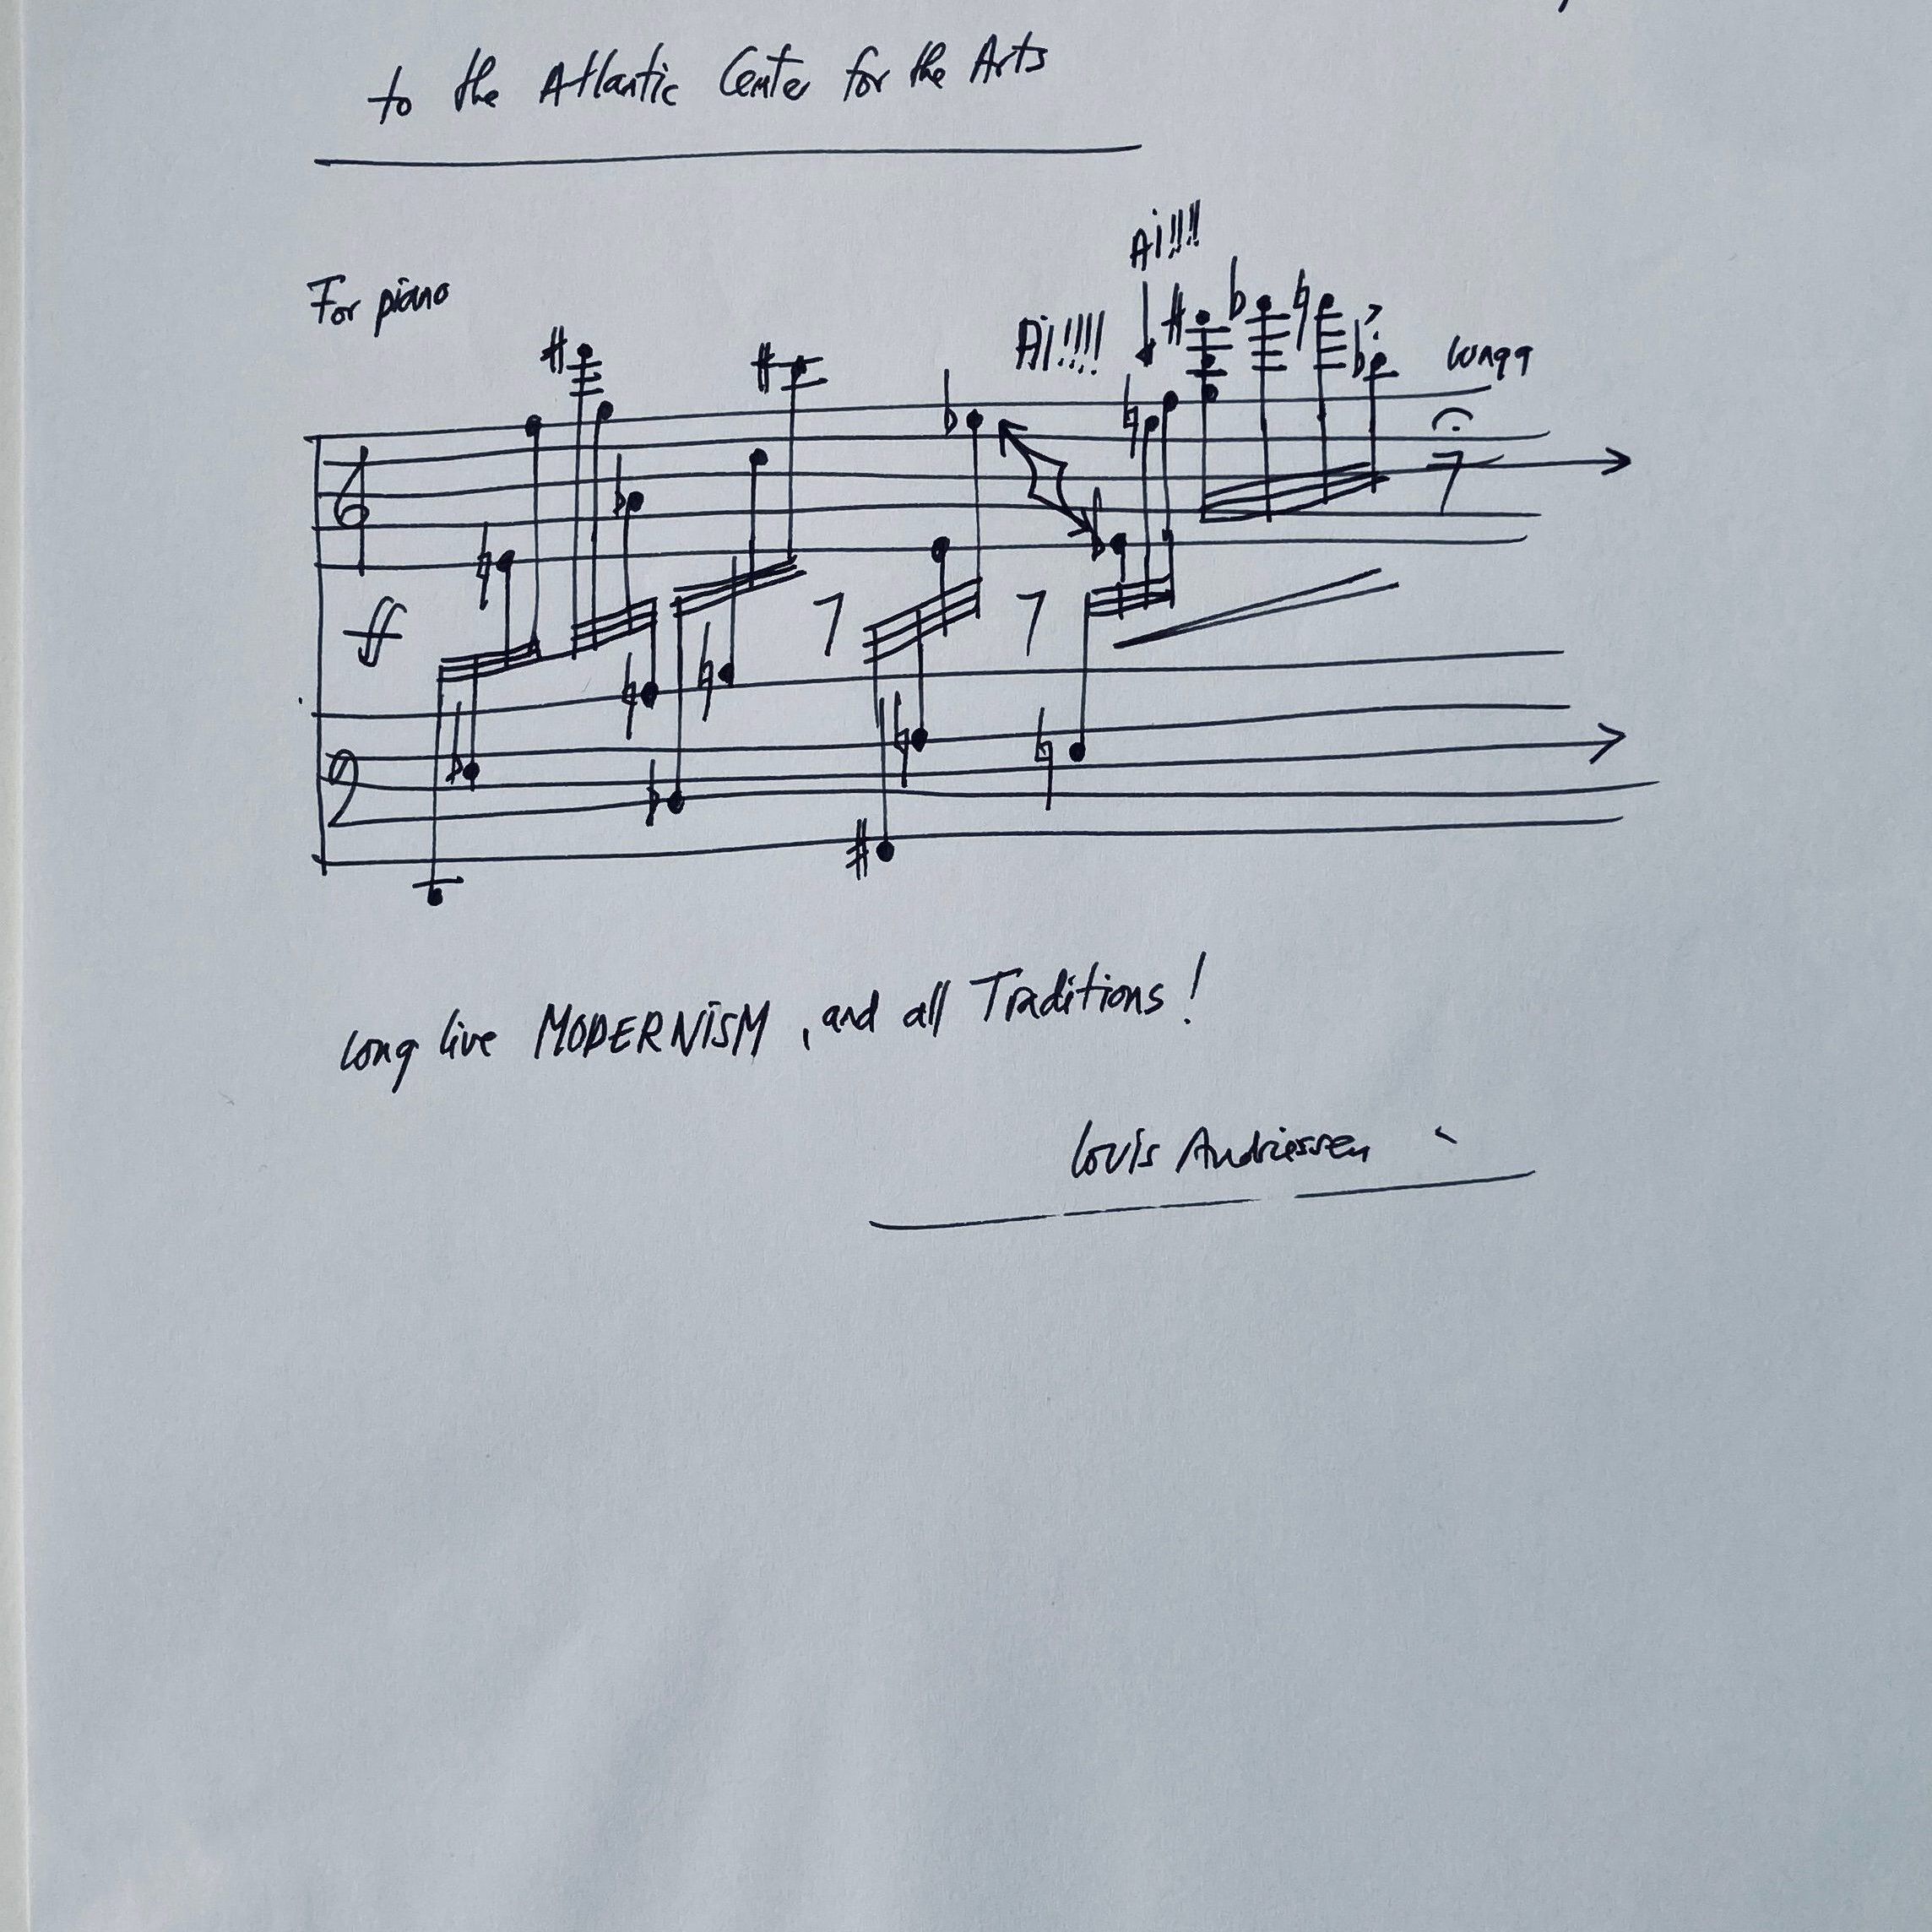 to the Atlantic Center for the Arts
For piano
Ai!!!!
Ai!!!!
lunga
ff
long live MODERNiSM, and all Traditions!
Louis Andriessen